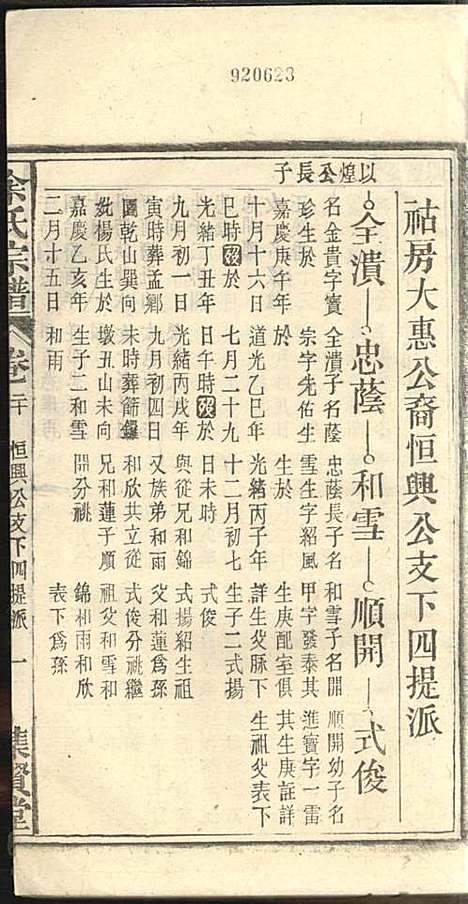 920623
祜房大惠公裔恒興公支下四提派
以煌公長子
全潰 忠蔭 和雪 順開 式俊
名金貴字寳
珍生於
嘉慶庚午年
十月十六日
巳時歿於
光緒丁丑年
九月初一日
寅時葬孟鄉
團乾山巽向
妣楊氏生於
嘉慶乙亥年
二月十五日
全潰子名蔭
宗字先佑生
於
道光乙巳年
七月二十九
日午時歿於
光緒丙戌年
九月初四日
未時葬篩鑼
墩丑山未向
生子二和雪
和雨
忠蔭長子名
雪生字紹風
生於
光緒丙子年
十二月初七
日未時
與從兄和錦
又族弟和雨
和欣共立從
兄和蓮子順
開分祧
和雪子名開
甲字發泰其
生庚配室俱
詳生父脈下
生子二式揚
式俊
式揚紹生祖
父和蓮爲孫
式俊分祧繼
祖父和雪和
錦和雨和欣
表下爲孫
順開幼子名
進寳字一雷
其生庚註詳
生祖父表下
余氏宗譜 卷二十 恒興公支下四提派 一 集賢堂